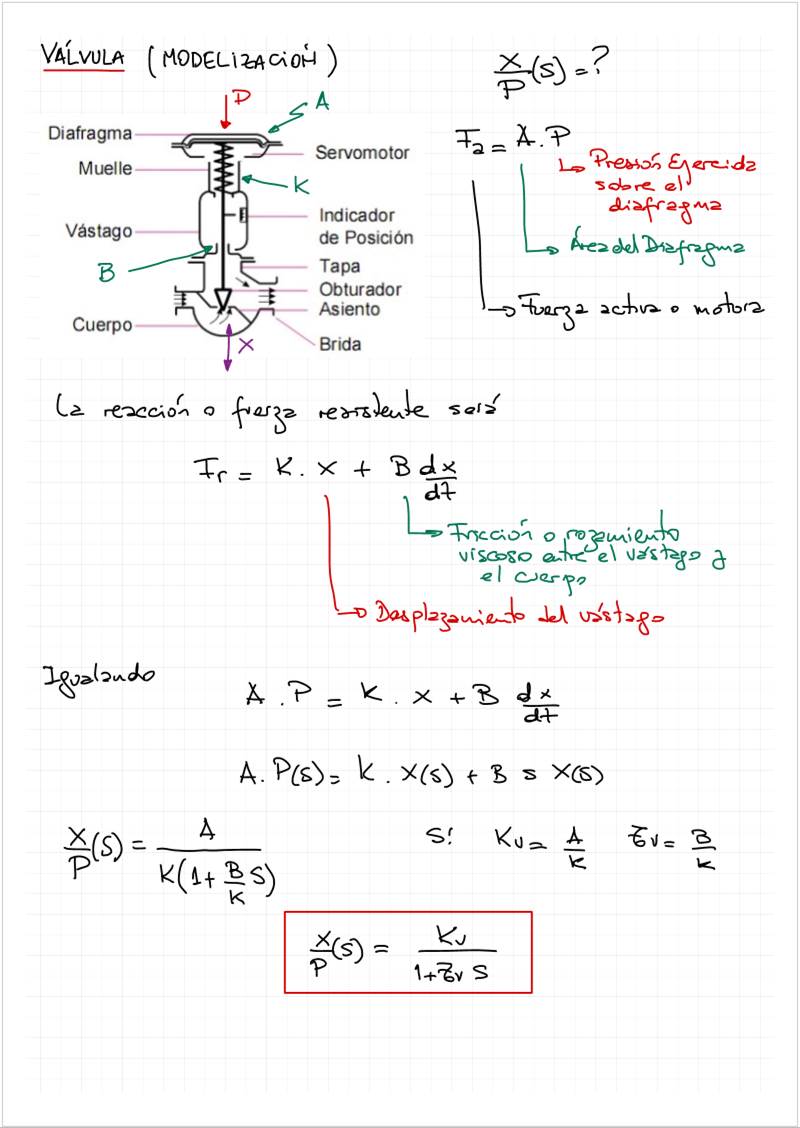 VÁLVULA (MODELIZACIÓN)
X/P(s) = ?
P
A
Diafragma
Servomotor
Muelle
K
Indicador
de Posición
Vástago
B
Tapa
Obturador
Asiento
Cuerpo
X
Brida
Fa = A . P
Presión Ejercida
sobre el
diafragma
Área del Diafragma
Fuerza activa o motora
La reacción o fuerza resistente será
Fr = K . x + B dx/dt
Fricción o rozamiento
viscoso entre el vástago y
el cuerpo
Desplazamiento del vástago
Igualando
A . P = K . x + B dx/dt
A . P(s) = K . X(s) + B s X(s)
X/P(s) = A / K(1 + B/K s)
Si Kv = A/K τv = B/K
X/P(s) = Kv / 1 + τv s